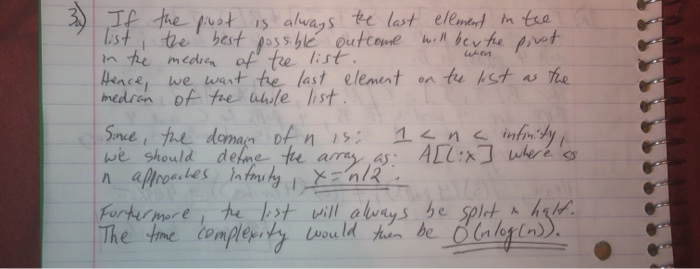 3) If the pivot is always the last element in the
list, the best possible outcome will be when the pivot
in the median of the list.
Hence, we want the last element on the list as the
median of the whole list.
Since, the domain of n is: 1 < n < infinity,
we should define the array as: A[1:x] where as
n approaches infinity x = n/2.
Furthermore, the list will always be split in half.
The time complexity would then be O(nlog(n)).